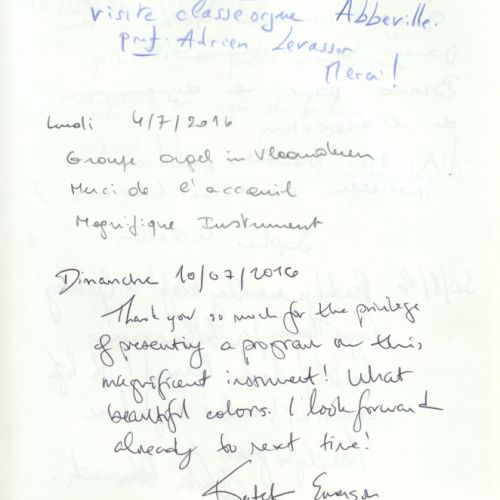 visite classe orgue Abbeville.
prof: Adrien Levassor
Merci!
Lundi 4/7/2016
Groupe orgel in Vlaanderen
Merci de l'acceuil
Magnifique Instrument
Dimanche 10/07/2016
Thank you so much for the privilege
of presenting a program on this
magnificent instrument! What
beautiful colors. I look forward
already to next time!